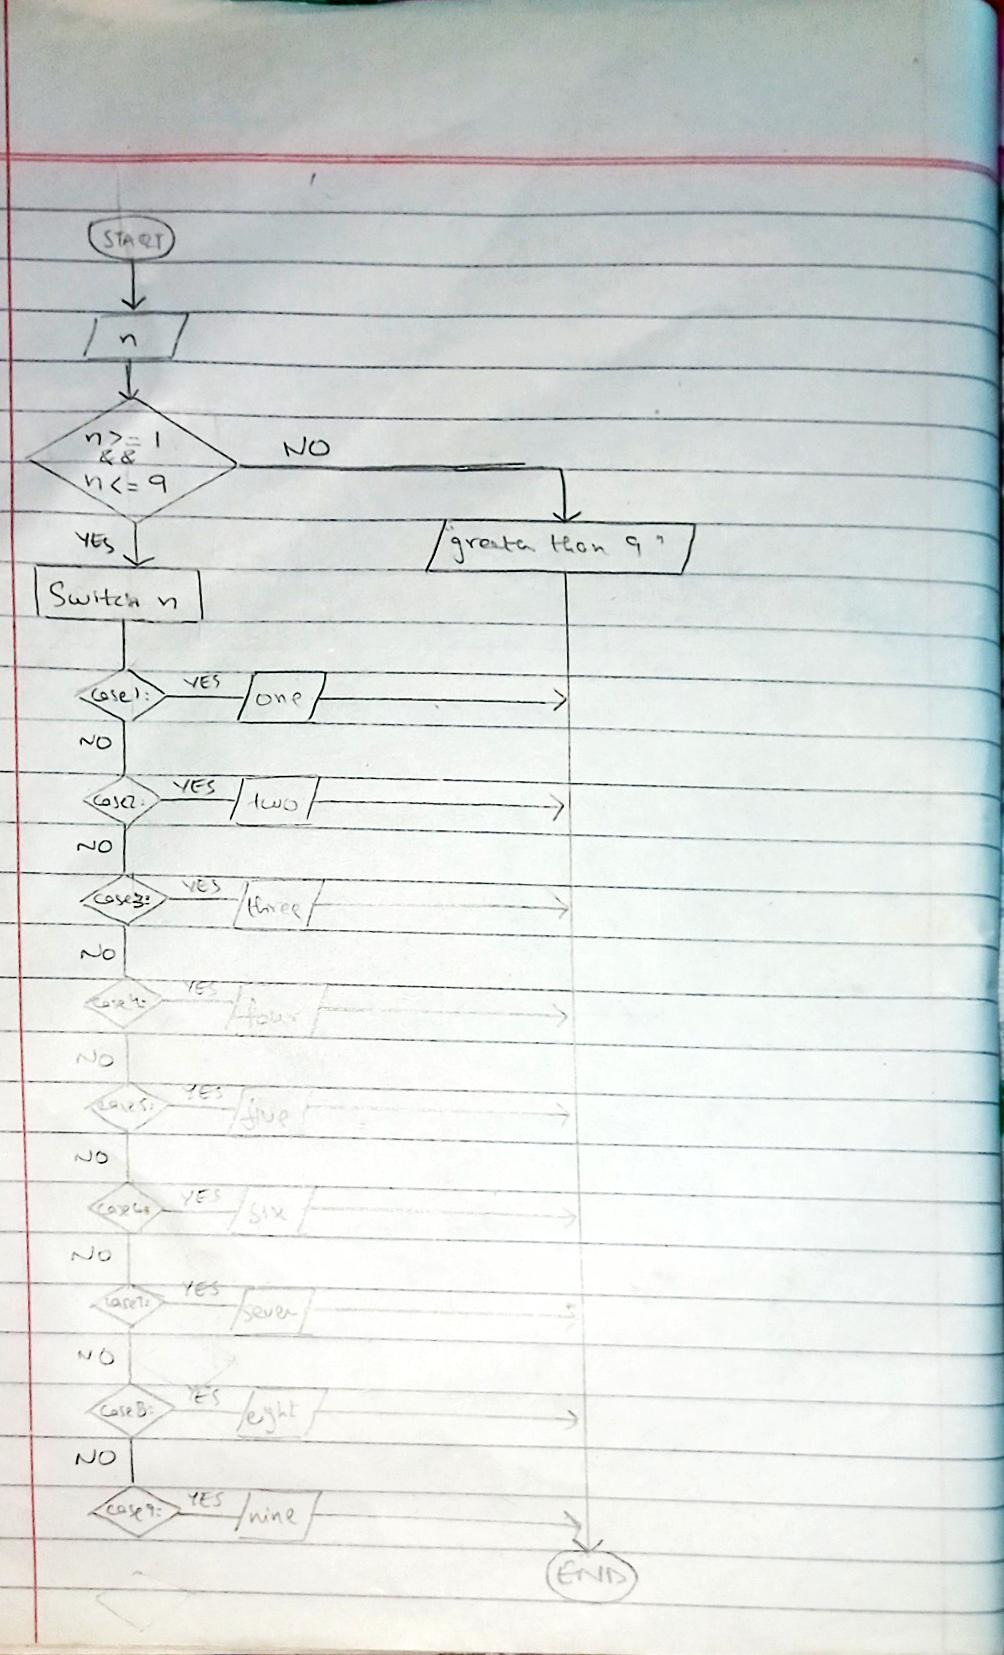 START
n
n>= 1
&&
n<= 9
NO
YES
"greater than 9"
Switch n
case1: YES one
NO
case2: YES two
NO
case3: YES three
NO
case4: YES four
NO
case5: YES five
NO
case6: YES six
NO
case7: YES seven
NO
case8: YES eght
NO
case9: YES nine
END